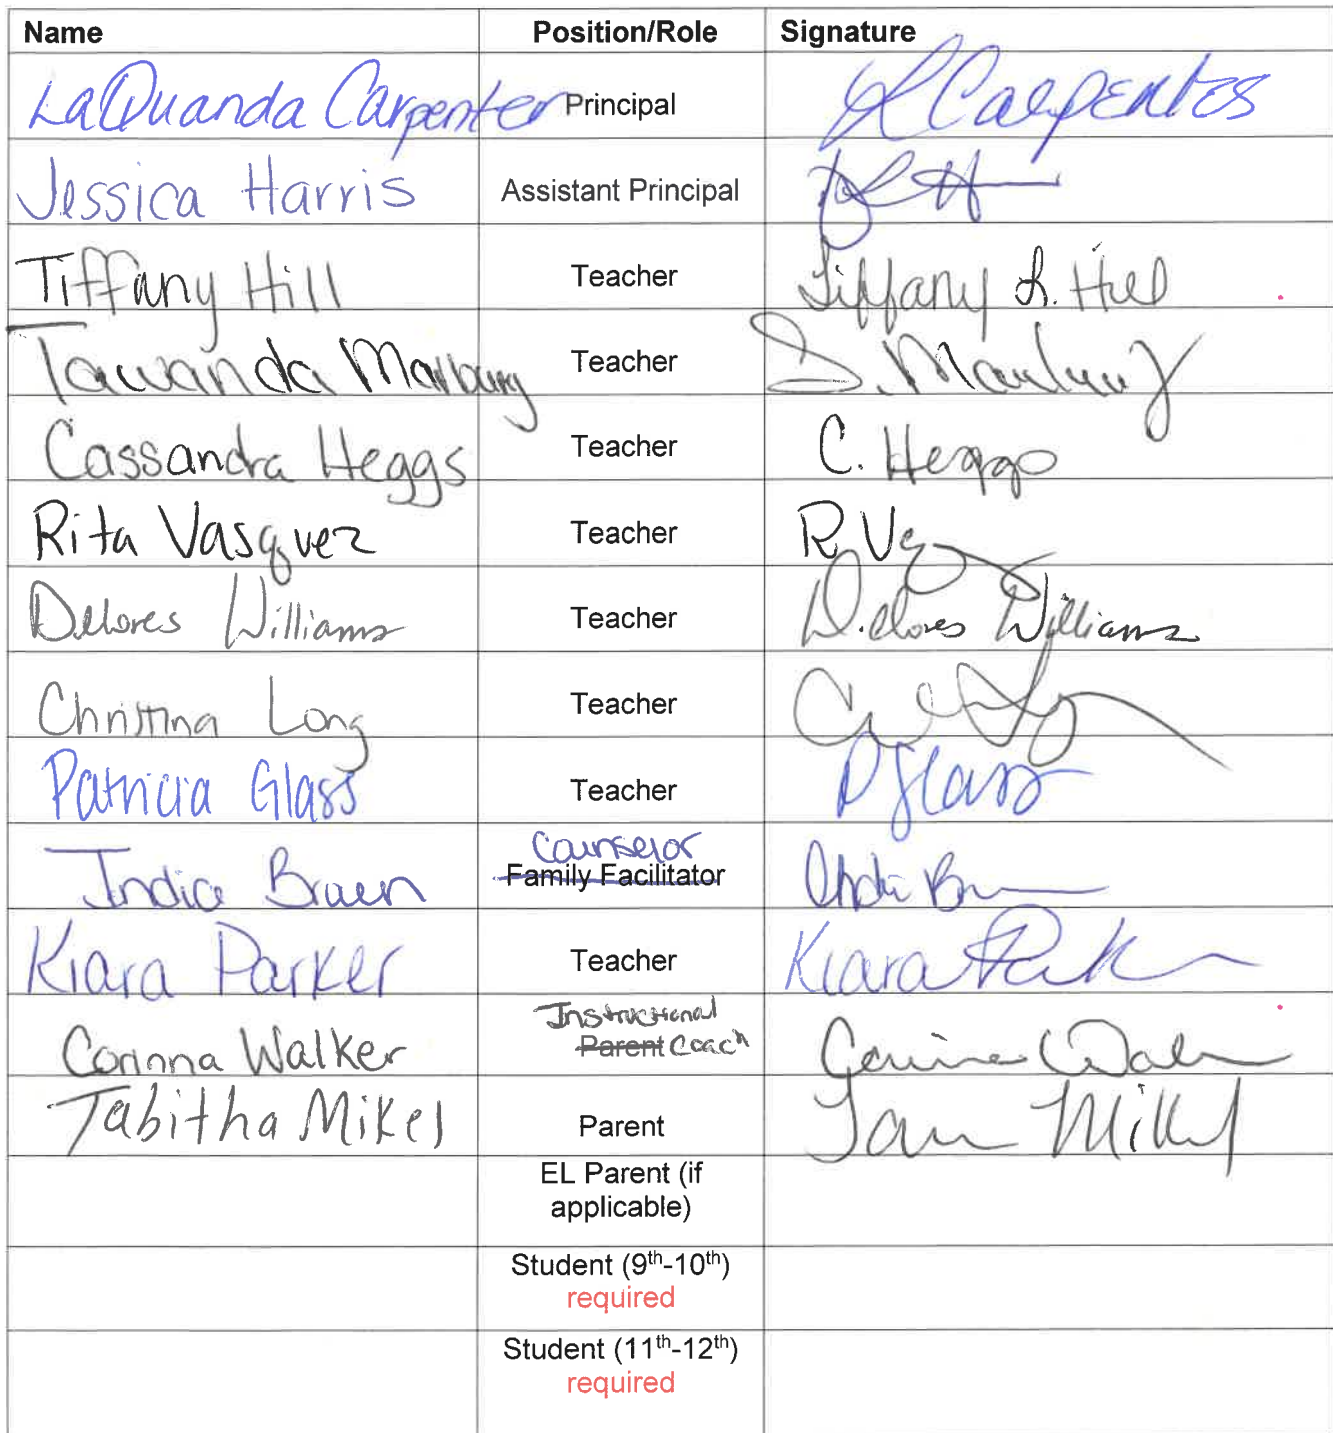 Name Position/Role Signature
LaQuanda Carpenter Principal L Carpenter
Jessica Harris Assistant Principal
Tiffany Hill Teacher Tiffany L. Hill
Tawanda Marbury Teacher T. Marbury
Cassandra Heggs Teacher C. Heggs
Rita Vasquez Teacher R V
Delores Williams Teacher Delores Williams
Christina Long Teacher
Patricia Glass Teacher P Glass
Counselor
India Braen Family Facilitator
Kiara Parker Teacher Kiara Parker
Instructional
Corinna Walker Parent Coach
Tabitha Mikel Parent
EL Parent (if
applicable)
Student (9th-10th)
required
Student (11th-12th)
required